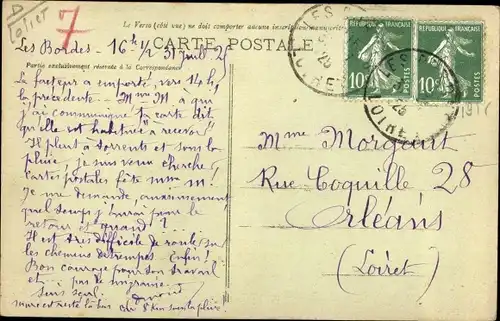 Loiret
7
Le Verso (côté vue) ne doit comporter aucune inscription manuscrite
CARTE POSTALE
Partie exclusivement réservée à la Correspondance
RÉPUBLIQUE FRANÇAISE
10 c POSTES
RÉPUBLIQUE FRANÇAISE
10 c POSTES
LES
LOIRET
Les Bordes - 16h 1/2 31 Juil
Le facteur a emporté, vers 14h,
la précédente... Mme M à qui
j'ai communiqué ta carte dit
qu'elle est habituée à recevoir
Il pleut à torrents et sous la
pluie, je suis venu chercher
cartes postales fête M!
Je me demande, anxieusement
quel temps j'aurai pour le
retour et quand?
Il est très difficile de rouler sur
les chemins détrempés. Enfin!
Bon courage pour ton travail
et... pas de migraine.
sous la pluie
Mme Morgant
Rue Coquille 28
Orléans
(Loiret)